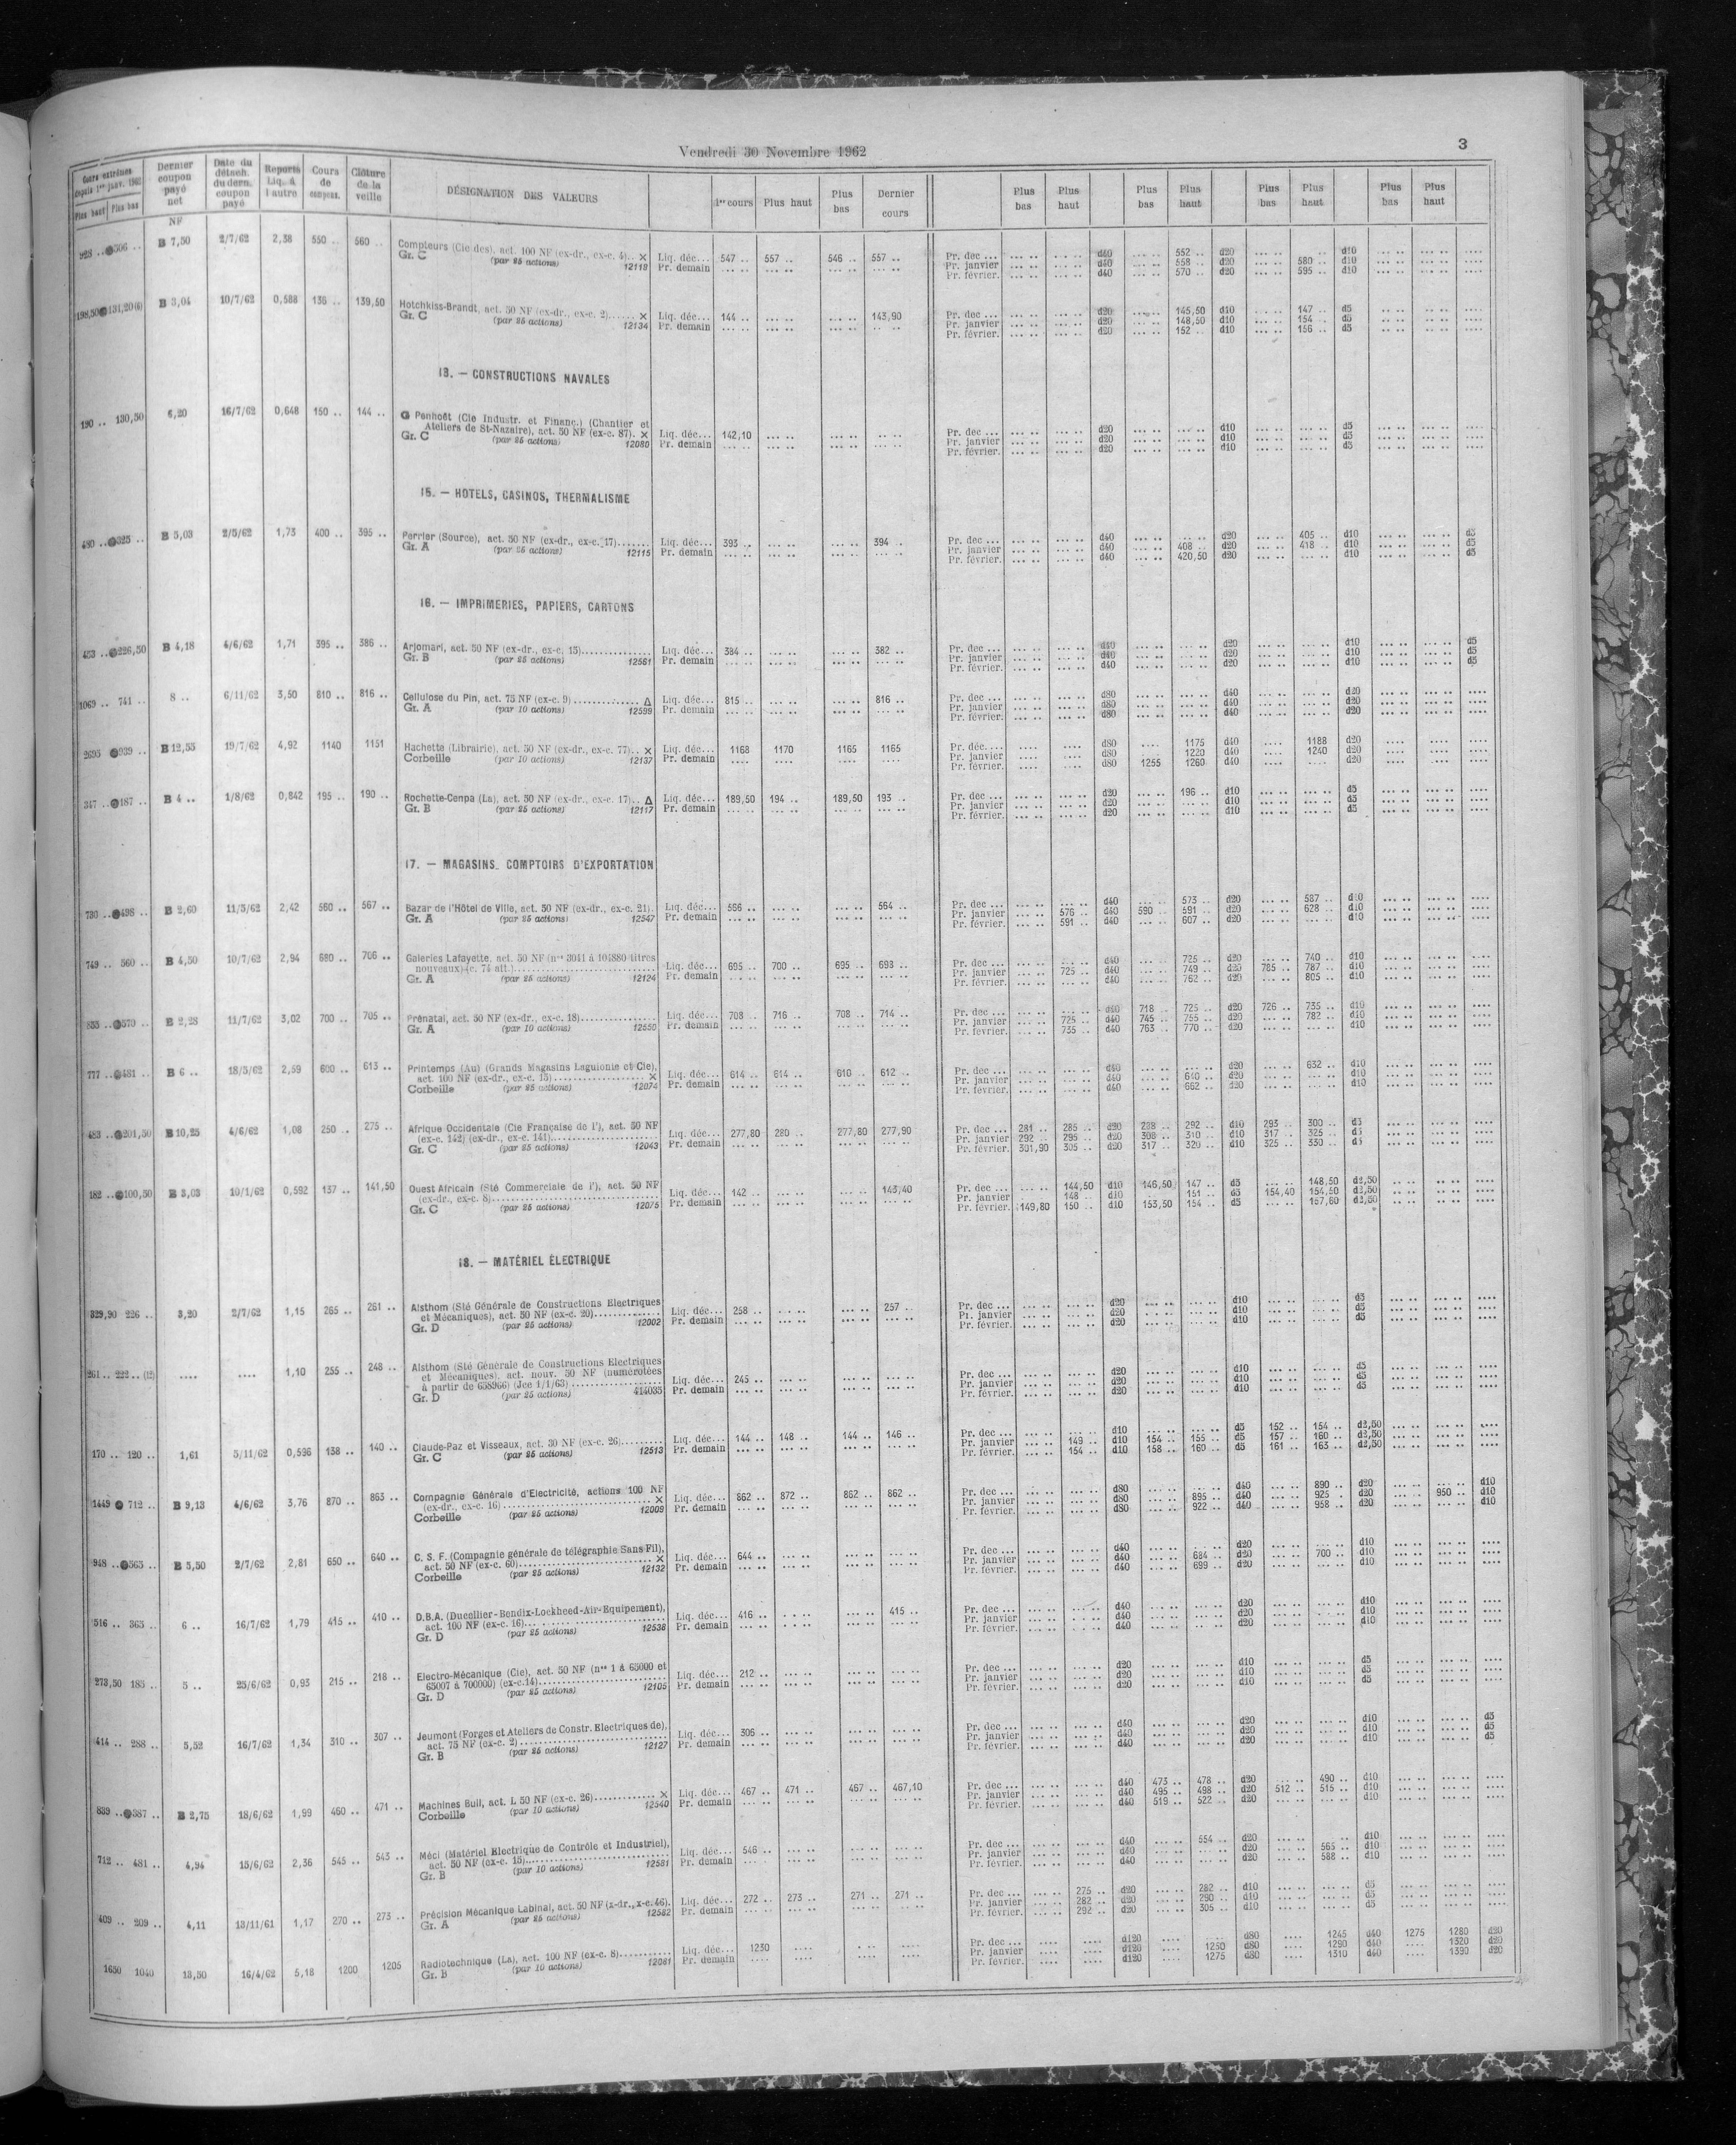 Vendredi 30 Novembre 1962
3
Cours extrêmes depuis 1er janv. 1962 Plus haut Plus bas | Dernier coupon payé net | Date du détach. du dern. coupon payé | Reports Liq. à l'autre | Cours de compens. | Clôture de la veille | DÉSIGNATION DES VALEURS | 1er cours | Plus haut | Plus bas | Dernier cours | Plus bas | Plus haut | Plus bas | Plus haut | Plus bas | Plus haut | Plus bas | Plus haut
NF
928 .. 506 .. B 7,50 2/7/62 2,38 550 .. 560 .. Compteurs (Cie des), act. 100 NF (ex-dr., ex-c. 4).. × Liq. déc... 547 .. 557 .. 546 .. 557 .. Pr. dec ... d40 552 .. d20 d10
Gr. C (par 25 actions) 12118 Pr. demain Pr. janvier d40 558 .. d20 580 .. d10
Pr. février. d40 570 .. d20 595 .. d10
198,50 131,20(6) B 3,04 10/7/62 0,588 136 .. 139,50 Hotchkiss-Brandt, act. 50 NF (ex-dr., ex-c. 2)...... × Liq. déc... 144 .. 143,90 Pr. dec ... d20 145,50 d10 147 .. d5
Gr. C (par 25 actions) 12134 Pr. demain Pr. janvier d20 148,50 d10 154 .. d5
Pr. février. d20 152 .. d10 156 .. d5
13. — CONSTRUCTIONS NAVALES
190 .. 130,50 6,20 16/7/62 0,648 150 .. 144 .. G Penhoët (Cie Industr. et Financ.) (Chantier et
Ateliers de St-Nazaire), act. 50 NF (ex-c. 87). × Liq. déc... 142,10 Pr. dec ... d20 d10 d5
Gr. C (par 25 actions) 12080 Pr. demain Pr. janvier d20 d10 d5
Pr. février. d20 d10 d5
15. — HOTELS, CASINOS, THERMALISME
480 .. 325 .. B 5,03 2/5/62 1,73 400 .. 395 .. Perrier (Source), act. 50 NF (ex-dr., ex-c. 17)....... Liq. déc... 393 .. 394 .. Pr. dec ... d40 d20 405 .. d10 d5
Gr. A (par 25 actions) 12115 Pr. demain Pr. janvier d40 408 .. d20 418 .. d10 d5
Pr. février. d40 420,50 d20 d10 d5
16. — IMPRIMERIES, PAPIERS, CARTONS
453 .. 226,50 B 4,18 4/6/62 1,71 395 .. 386 .. Arjomari, act. 50 NF (ex-dr., ex-c. 15)............... Liq. déc... 384 .. 382 .. Pr. dec ... d40 d20 d10 d5
Gr. B (par 25 actions) 12561 Pr. demain Pr. janvier d40 d20 d10 d5
Pr. février. d40 d20 d10 d5
1069 .. 741 .. 8 .. 6/11/62 3,50 810 .. 816 .. Cellulose du Pin, act. 75 NF (ex-c. 9) .............. Δ Liq. déc... 815 .. 816 .. Pr. dec ... d80 d40 d20
Gr. A (par 10 actions) 12599 Pr. demain Pr. janvier d80 d40 d20
Pr. février. d80 d40 d20
2695 939 .. B 12,55 19/7/62 4,92 1140 1151 Hachette (Librairie), act. 50 NF (ex-dr., ex-c. 77).. × Liq. déc... 1168 1170 1165 1165 Pr. déc.... d80 1175 d40 1188 d20
Corbeille (par 10 actions) 12137 Pr. demain Pr. janvier d80 1220 d40 1240 d20
Pr. février. d80 1255 1260 d40 d20
347 .. 187 .. B 4 .. 1/8/62 0,842 195 .. 190 .. Rochette-Cenpa (La), act. 50 NF (ex-dr., ex-c. 17).. Δ Liq. déc... 189,50 194 .. 189,50 193 .. Pr. dec ... d20 196 .. d10 d5
Gr. B (par 25 actions) 12117 Pr. demain Pr. janvier d20 d10 d5
Pr. février. d20 d10 d5
17. — MAGASINS. COMPTOIRS D'EXPORTATION
730 .. 498 .. B 2,60 11/5/62 2,42 560 .. 567 .. Bazar de l'Hôtel de Ville, act. 50 NF (ex-dr., ex-c. 21). Liq. déc... 566 .. 564 .. Pr. dec ... d40 573 .. d20 587 .. d10
Gr. A (par 25 actions) 12547 Pr. demain Pr. janvier 576 .. d40 590 .. 591 .. d20 628 .. d10
Pr. février. 591 .. d40 607 .. d20 d10
749 .. 560 .. B 4,50 10/7/62 2,94 680 .. 706 .. Galeries Lafayette, act. 50 NF (nos 3041 à 104880 titres
nouveaux) (c. 74 att.)............ Liq. déc... 695 .. 700 .. 695 .. 693 .. Pr. dec ... d40 725 .. d20 740 .. d10
Gr. A (par 25 actions) 12124 Pr. demain Pr. janvier 725 .. d40 749 .. d20 785 .. 787 .. d10
Pr. février. d40 762 .. d20 805 .. d10
855 .. 570 .. B 2,28 11/7/62 3,02 700 .. 705 .. Prénatal, act. 50 NF (ex-dr., ex-c. 18)............... Liq. déc... 708 .. 716 .. 708 .. 714 .. Pr. dec ... d40 718 .. 725 .. d20 726 .. 735 .. d10
Gr. A (par 10 actions) 12550 Pr. demain Pr. janvier 725 .. d40 745 .. 755 .. d20 782 .. d10
Pr. février. 735 .. d40 763 .. 770 .. d20 d10
777 .. 481 .. B 6 .. 18/5/62 2,59 600 .. 613 .. Printemps (Au) (Grands Magasins Laguionie et Cie),
act. 100 NF (ex-dr., ex-c. 15).................. × Liq. déc... 614 .. 614 .. 610 .. 612 .. Pr. dec ... d40 d20 632 .. d10
Corbeille (par 25 actions) 12074 Pr. demain Pr. janvier d40 640 .. d20 d10
Pr. février. d40 662 .. d20 d10
483 .. 201,50 B 10,25 4/6/62 1,08 250 .. 275 .. Afrique Occidentale (Cie Française de l'), act. 50 NF
(ex-c. 142) (ex-dr., ex-c. 141).................. Liq. déc... 277,80 280 .. 277,80 277,90 Pr. dec ... 281 .. 285 .. d20 288 .. 292 .. d10 293 .. 300 .. d5
Gr. C (par 25 actions) 12043 Pr. demain Pr. janvier 292 .. 295 .. d20 308 .. 310 .. d10 317 .. 325 .. d5
Pr. février. 301,90 305 .. d20 317 .. 320 .. d10 325 .. 330 .. d5
182 .. 100,50 B 3,03 10/1/62 0,592 137 .. 141,50 Ouest Africain (Sté Commerciale de l'), act. 50 NF
(ex-dr., ex-c. 8)............ Liq. déc... 142 .. 143,40 Pr. dec ... 144,50 d10 146,50 147 .. d5 148,50 d2,50
Gr. C (par 25 actions) 12075 Pr. demain Pr. janvier 148 .. d10 151 .. d5 154,40 154,50 d2,50
Pr. février. 149,80 150 .. d10 153,50 154 .. d5 157,60 d2,50
18. — MATÉRIEL ÉLECTRIQUE
329,90 226 .. 3,20 2/7/62 1,15 265 .. 261 .. Alsthom (Sté Générale de Constructions Electriques
et Mécaniques), act. 50 NF (ex-c. 20)............ Liq. déc... 258 .. 257 .. Pr. dec ... d20 d10 d5
Gr. D (par 25 actions) 12002 Pr. demain Pr. janvier d20 d10 d5
Pr. février. d20 d10 d5
261 .. 222 .. (12) .... .... 1,10 255 .. 248 .. Alsthom (Sté Générale de Constructions Electriques
et Mécaniques), act. nouv. 50 NF (numérotées
à partir de 658966) (Jce 1/1/63) .................. Liq. déc... 245 .. Pr. dec ... d20 d10 d5
Gr. D (par 25 actions) 414035 Pr. demain Pr. janvier d20 d10 d5
Pr. février. d20 d10 d5
170 .. 120 .. 1,61 5/11/62 0,596 138 .. 140 .. Claude-Paz et Visseaux, act. 30 NF (ex-c. 26)......... Liq. déc... 144 .. 148 .. 144 .. 146 .. Pr. dec ... d10 d5 152 .. 154 .. d2,50
Gr. C (par 25 actions) 12513 Pr. demain Pr. janvier 149 .. d10 154 .. 155 .. d5 157 .. 160 .. d2,50
Pr. février. 154 .. d10 158 .. 160 .. d5 161 .. 163 .. d2,50
1449 712 .. B 9,13 4/6/62 3,76 870 .. 863 .. Compagnie Générale d'Electricité, actions 100 NF
(ex-dr., ex-c. 16) .................. × Liq. déc... 862 .. 872 .. 862 .. 862 .. Pr. dec ... d80 d40 890 .. d20 d10
Corbeille (par 25 actions) 12009 Pr. demain Pr. janvier d80 895 .. d40 925 .. d20 950 .. d10
Pr. février. d80 922 .. d40 958 .. d20 d10
948 .. 565 .. B 5,50 2/7/62 2,81 650 .. 640 .. C. S. F. (Compagnie générale de télégraphie Sans Fil),
act. 50 NF (ex-c. 60).................. × Liq. déc... 644 .. Pr. dec ... d40 d20 d10
Corbeille (par 25 actions) 12132 Pr. demain Pr. janvier d40 684 .. d20 700 .. d10
Pr. février. d40 699 .. d20 d10
516 .. 365 .. 6 .. 16/7/62 1,79 415 .. 410 .. D.B.A. (Ducellier-Bendix-Lockheed-Air-Equipement),
act. 100 NF (ex-c. 16)............ Liq. déc... 416 .. 415 .. Pr. dec ... d40 d20 d10
Gr. D (par 25 actions) 12538 Pr. demain Pr. janvier d40 d20 d10
Pr. février. d40 d20 d10
273,50 185 .. 5 .. 25/6/62 0,93 215 .. 218 .. Electro-Mécanique (Cie), act. 50 NF (nos 1 à 65000 et
65007 à 700000) (ex-c.14)............ Liq. déc... 212 .. Pr. dec ... d20 d10 d5
Gr. D (par 25 actions) 12105 Pr. demain Pr. janvier d20 d10 d5
Pr. février. d20 d10 d5
414 .. 288 .. 5,52 16/7/62 1,34 310 .. 307 .. Jeumont (Forges et Ateliers de Constr. Electriques de),
act. 75 NF (ex-c. 2)............ Liq. déc... 306 .. Pr. dec ... d40 d20 d10 d5
Gr. B (par 25 actions) 12127 Pr. demain Pr. janvier d40 d20 d10 d5
Pr. février. d40 d20 d10 d5
839 .. 387 .. B 2,75 18/6/62 1,99 460 .. 471 .. Machines Bull, act. L 50 NF (ex-c. 26)............ × Liq. déc... 467 .. 471 .. 467 .. 467,10 Pr. dec ... d40 473 .. 478 .. d20 490 .. d10
Corbeille (par 10 actions) 12540 Pr. demain Pr. janvier d40 495 .. 498 .. d20 512 .. 515 .. d10
Pr. février. d40 519 .. 522 .. d20 d10
712 .. 481 .. 4,94 15/6/62 2,36 545 .. 543 .. Méci (Matériel Electrique de Contrôle et Industriel),
act. 50 NF (ex-c. 15)............ Liq. déc... 546 .. Pr. dec ... d40 554 .. d20 d10
Gr. B (par 10 actions) 12581 Pr. demain Pr. janvier d40 d20 565 .. d10
Pr. février. d40 d20 588 .. d10
409 .. 209 .. 4,11 13/11/61 1,17 270 .. 273 .. Précision Mécanique Labinal, act. 50 NF (x-dr., x-c. 46). Liq. déc... 272 .. 273 .. 271 .. 271 .. Pr. dec ... 275 .. d20 282 .. d10 d5
Gr. A (par 25 actions) 12582 Pr. demain Pr. janvier 282 .. d20 290 .. d10 d5
Pr. février. 292 .. d20 305 .. d10 d5
1650 1040 13,50 16/4/62 5,18 1200 1205 Radiotechnique (La), act. 100 NF (ex-c. 8)........... Liq. déc... 1230 Pr. dec ... d120 d80 1245 d40 1275 1280 d20
Gr. B (par 10 actions) 12081 Pr. demain Pr. janvier d120 1250 d80 1290 d40 1320 d20
Pr. février. d120 1275 d80 1310 d40 1390 d20